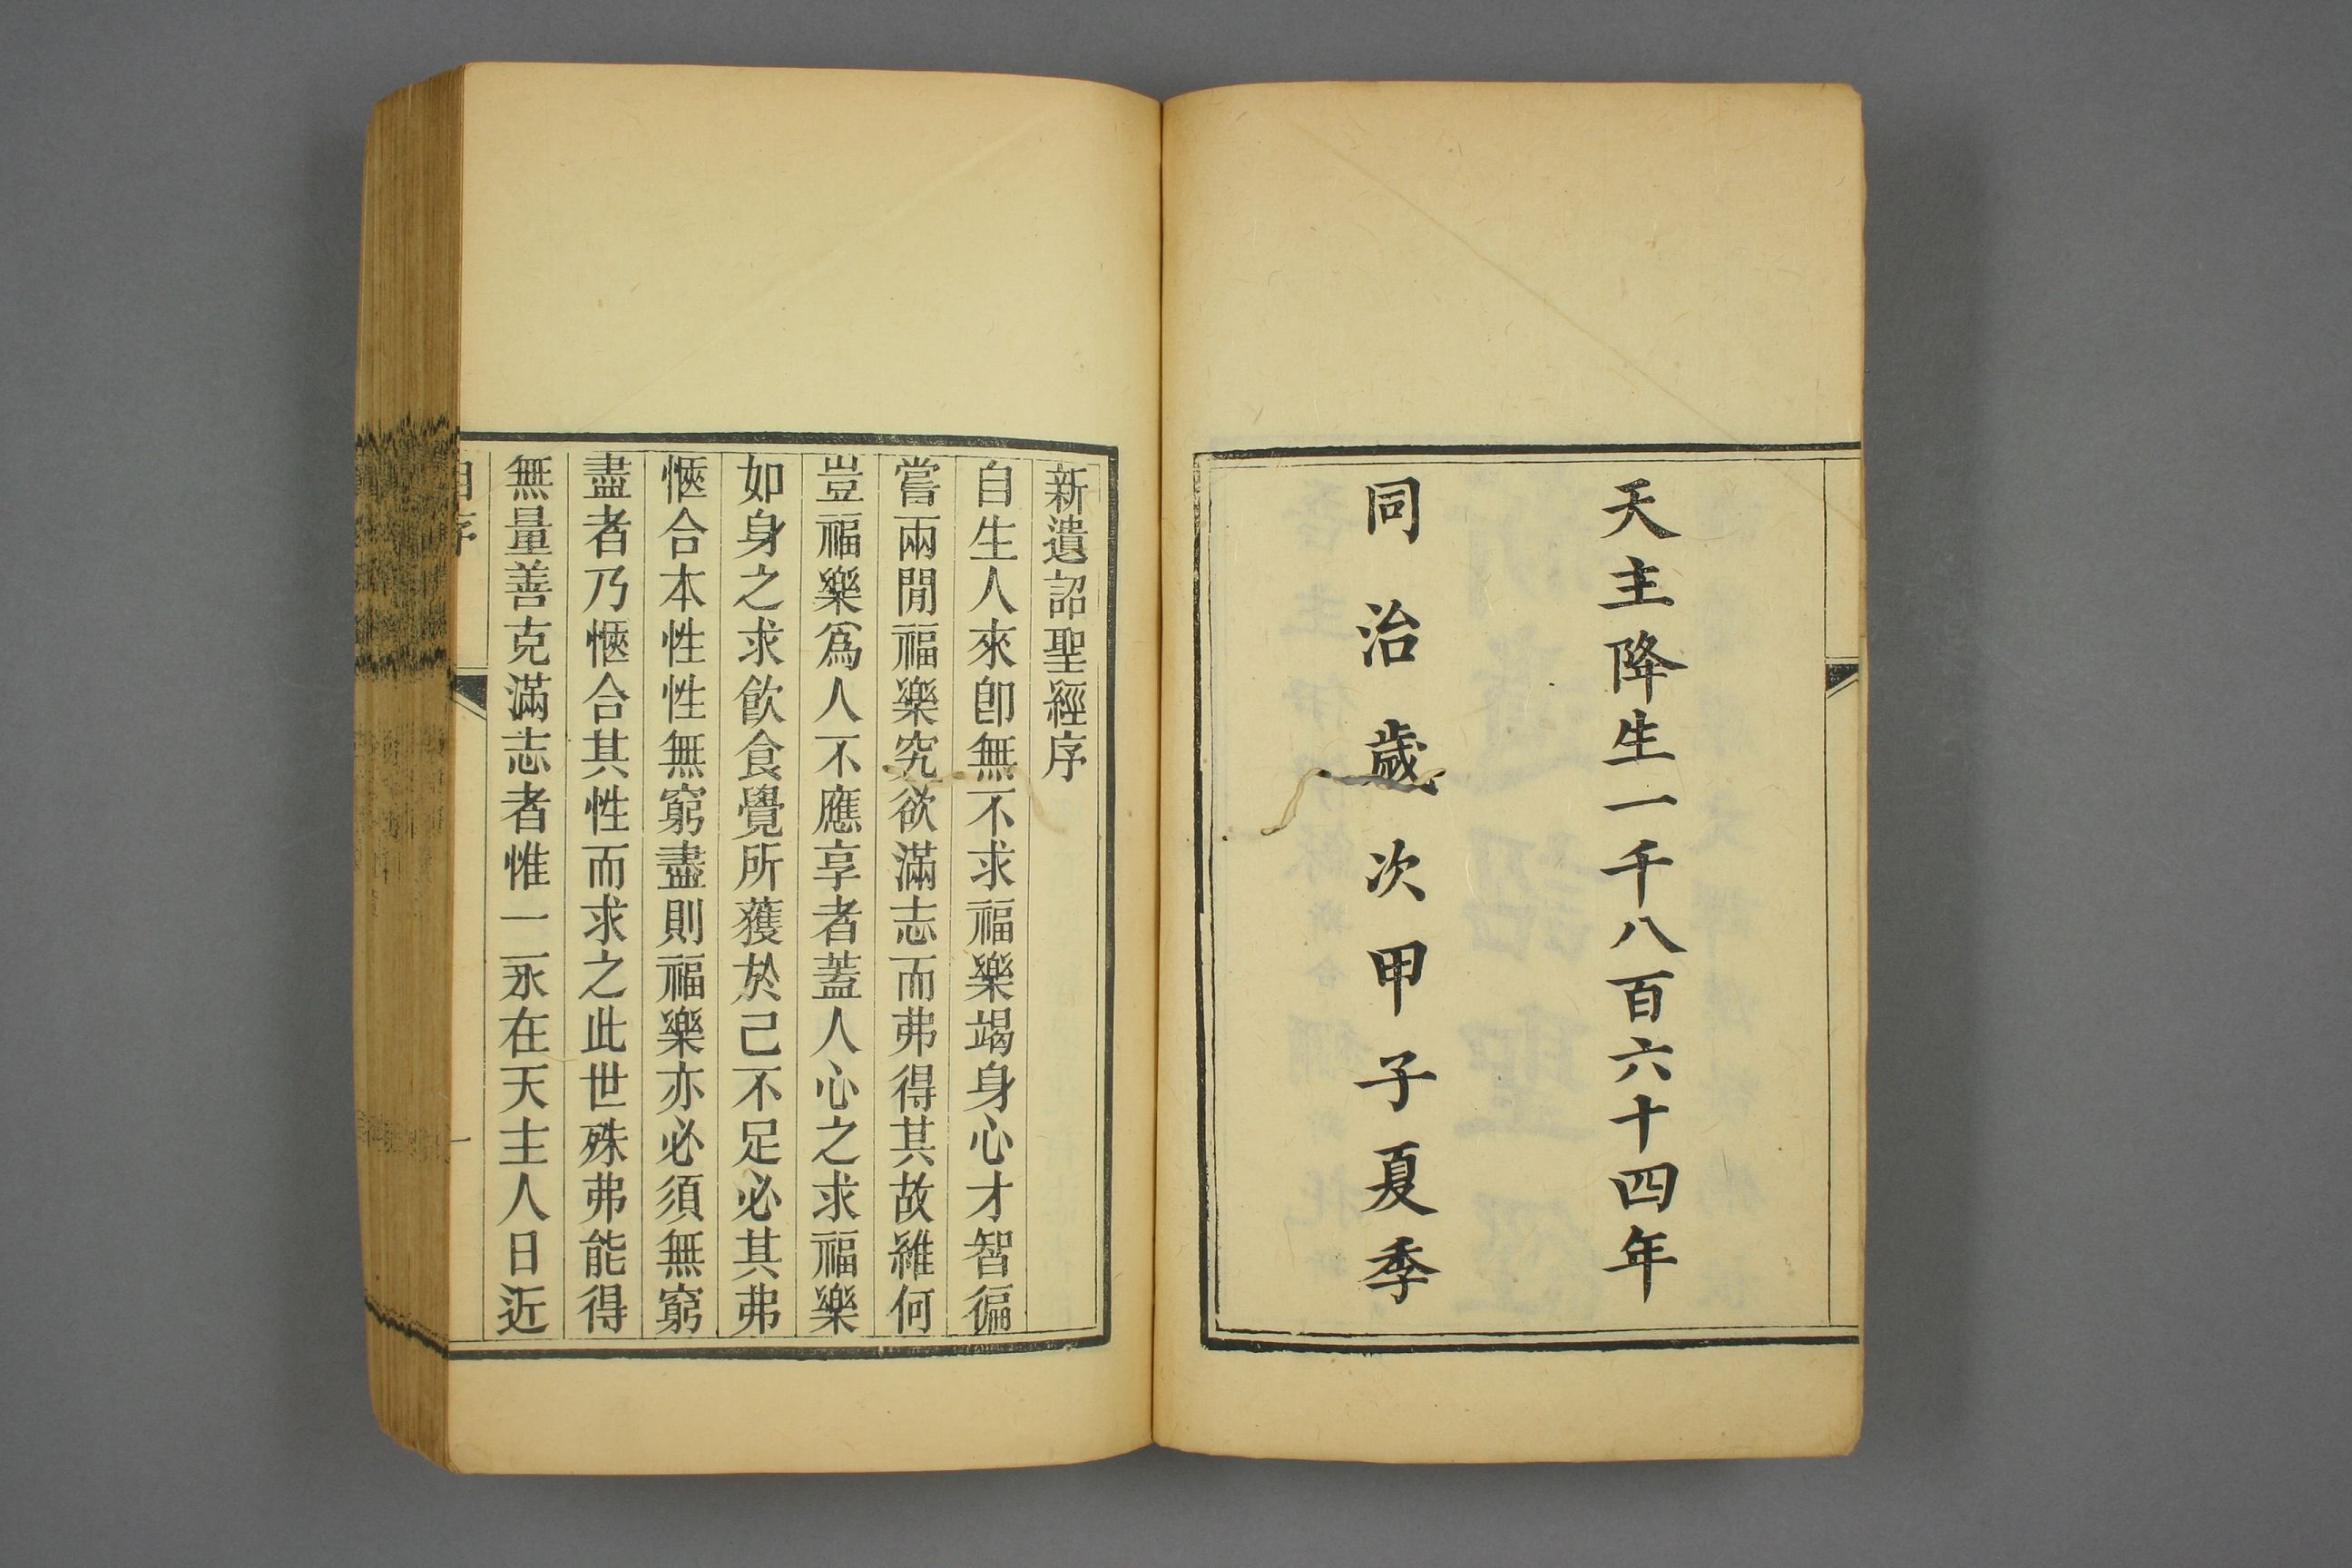 天主降生一千八百六十四年
同治歲次甲子夏季
新遺詔聖經序
自生人來卽無不求福樂竭身心才智徧
嘗兩閒福樂究欲滿志而弗得其故維何
豈福樂爲人不應享者蓋人心之求福樂
如身之求飲食覺所獲於己不足必其弗
愜合本性性無窮盡則福樂亦必須無窮
盡者乃愜合其性而求之此世殊弗能得
無量善克滿志者惟一永在天主人日近